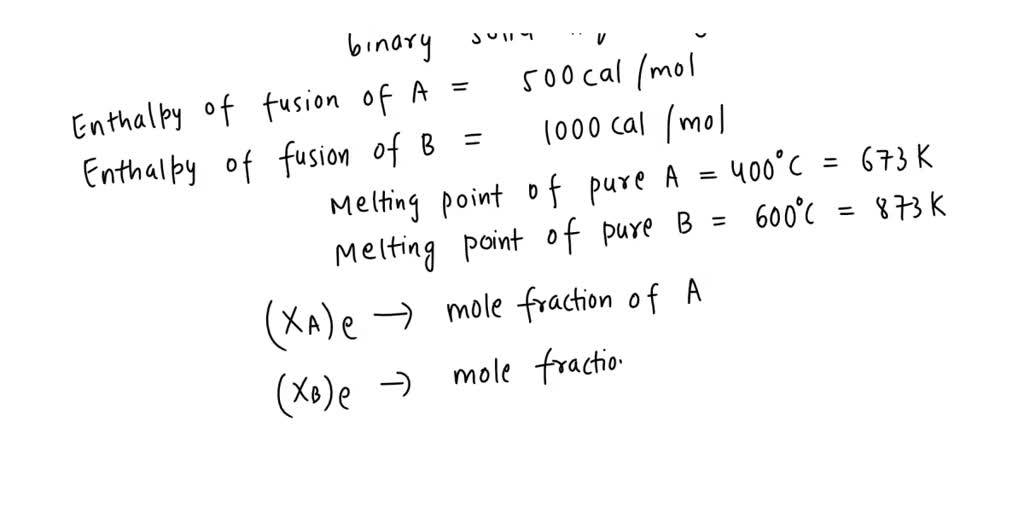 binary
Enthalpy of fusion of A = 500 cal/mol
Enthalpy of fusion of B = 1000 cal/mol
Melting point of pure A = 400°C = 673 K
Melting point of pure B = 600°C = 873 K
(XA)e → mole fraction of A
(XB)e → mole fractio